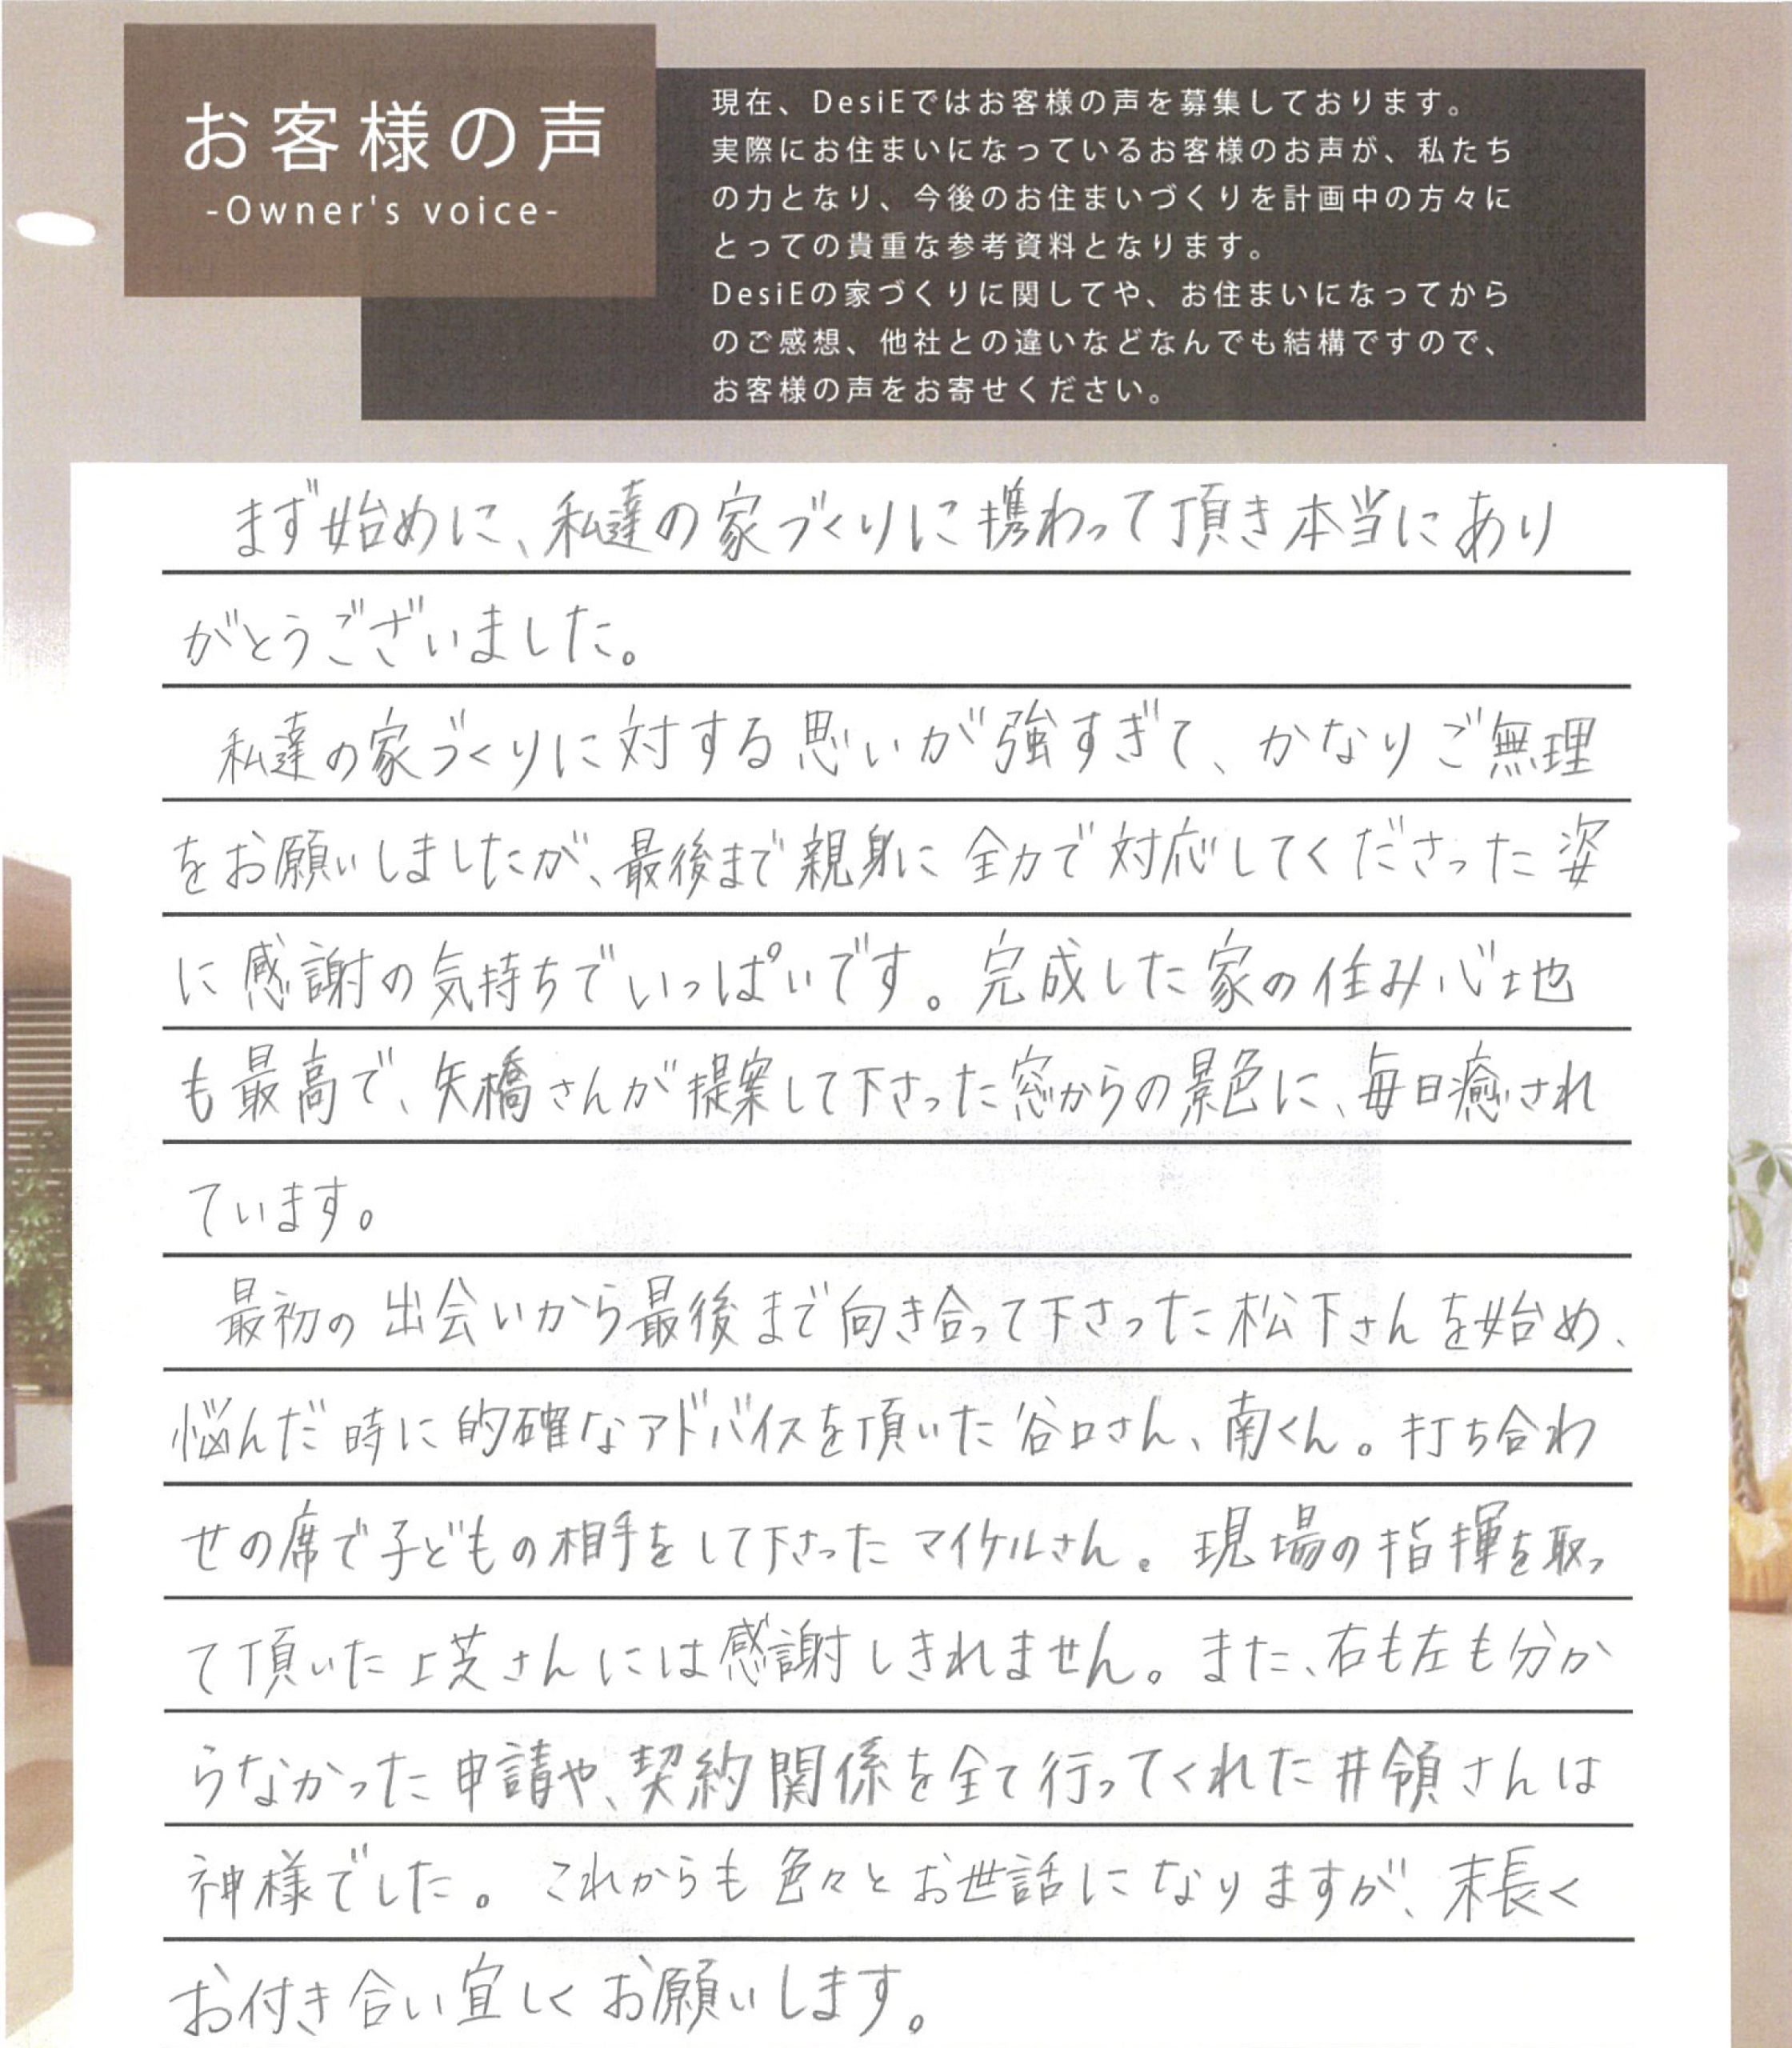 お客様の声
-Owner's voice-
現在、DesiEではお客様の声を募集しております。
実際にお住まいになっているお客様のお声が、私たち
の力となり、今後のお住まいづくりを計画中の方々に
とっての貴重な参考資料となります。
DesiEの家づくりに関してや、お住まいになってから
のご感想、他社との違いなどなんでも結構ですので、
お客様の声をお寄せください。
まず始めに、私達の家づくりに携わって頂き本当にあり
がとうございました。
私達の家づくりに対する思いが強すぎて、かなりご無理
をお願いしましたが、最後まで親身に全力で対応してくださった姿
に感謝の気持ちでいっぱいです。完成した家の住み心地
も最高で、矢橋さんが提案して下さった窓からの景色に、毎日癒され
ています。
最初の出会いから最後まで向き合って下さった松下さんを始め、
悩んだ時に的確なアドバイスを頂いた谷口さん、南くん。打ち合わ
せの席で子どもの相手をして下さったマイケルさん。現場の指揮を取っ
て頂いた上芝さんには感謝しきれません。また、右も左も分か
らなかった申請や、契約関係を全て行ってくれた井領さんは
神様でした。これからも色々とお世話になりますが、末長く
お付き合い宜しくお願いします。